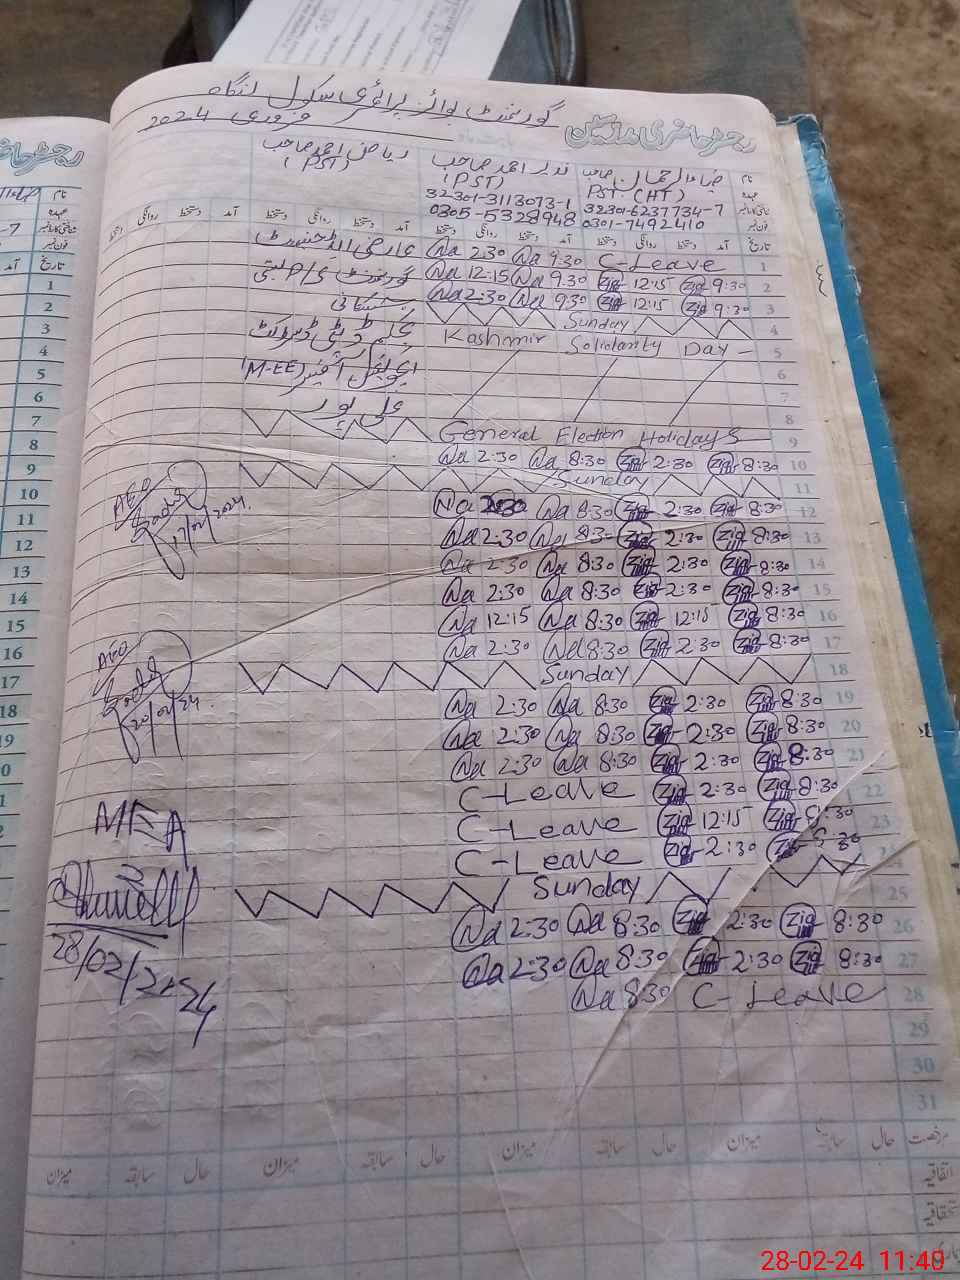 گورنمنٹ بوائز پرائمری سکول لنگاہ
فروری 2024
رجسٹر حاضری مدارسین
نام ضیاءالرحمان صاحب نذیر احمد صاحب ریاض احمد صاحب
عہدہ PST (HT) (PST) (PST)
شناختی کارڈ نمبر 32301-6237734-7 32301-3113073-1
فون نمبر 0301-7492410 0305-5328948
تاریخ آمد دستخط روانگی دستخط آمد دستخط روانگی دستخط آمد دستخط روانگی دستخط آمد دستخط روانگی دستخط
Na 2:30 Na 9:30 C-Leave 1
Na 12:15 Na 9:30 Zia 12:15 Zia 9:30 2
Na 2:30 Na 9:30 Zia 12:15 Zia 9:30 3
Sunday 4
Kashmir Solidarity Day - 5
6
7
8
General Election Holidays 9
Na 2:30 Na 8:30 Zia 2:30 Zia 8:30 10
Sunday 11
Na 2:30 Na 8:30 Zia 2:30 Zia 8:30 12
Na 2:30 Na 8:30 Zia 2:30 Zia 8:30 13
Na 2:30 Na 8:30 Zia 2:30 Zia 8:30 14
Na 2:30 Na 8:30 Zia 2:30 Zia 8:30 15
Na 12:15 Na 8:30 Zia 12:15 Zia 8:30 16
Na 2:30 Na 8:30 Zia 2:30 Zia 8:30 17
Sunday 18
Na 2:30 Na 8:30 Zia 2:30 Zia 8:30 19
Na 2:30 Na 8:30 Zia 2:30 Zia 8:30 20
Na 2:30 Na 8:30 Zia 2:30 Zia 8:30 21
C-Leave Zia 2:30 Zia 8:30 22
C-Leave Zia 12:15 Zia 8:30 23
C-Leave Zia 2:30 Zia 8:30 24
Sunday 25
Na 2:30 Na 8:30 Zia 2:30 Zia 8:30 26
Na 2:30 Na 8:30 Zia 2:30 Zia 8:30 27
Na 8:30 C-Leave 28
29
30
31
عارضی ایڈجسٹمنٹ
گورنمنٹ P/S بستی
بحکم ڈپٹی ڈسٹرکٹ
ایجوکیشن آفیسر (M-EE)
علی پور
AEO
17/02/2024
AEO
20/02/24
MEA
28/02/2024
رخصت حال سابقہ میزان حال سابقہ میزان حال سابقہ میزان حال سابقہ میزان
اتفاقیہ
استحقاقیہ
28-02-24 11:40